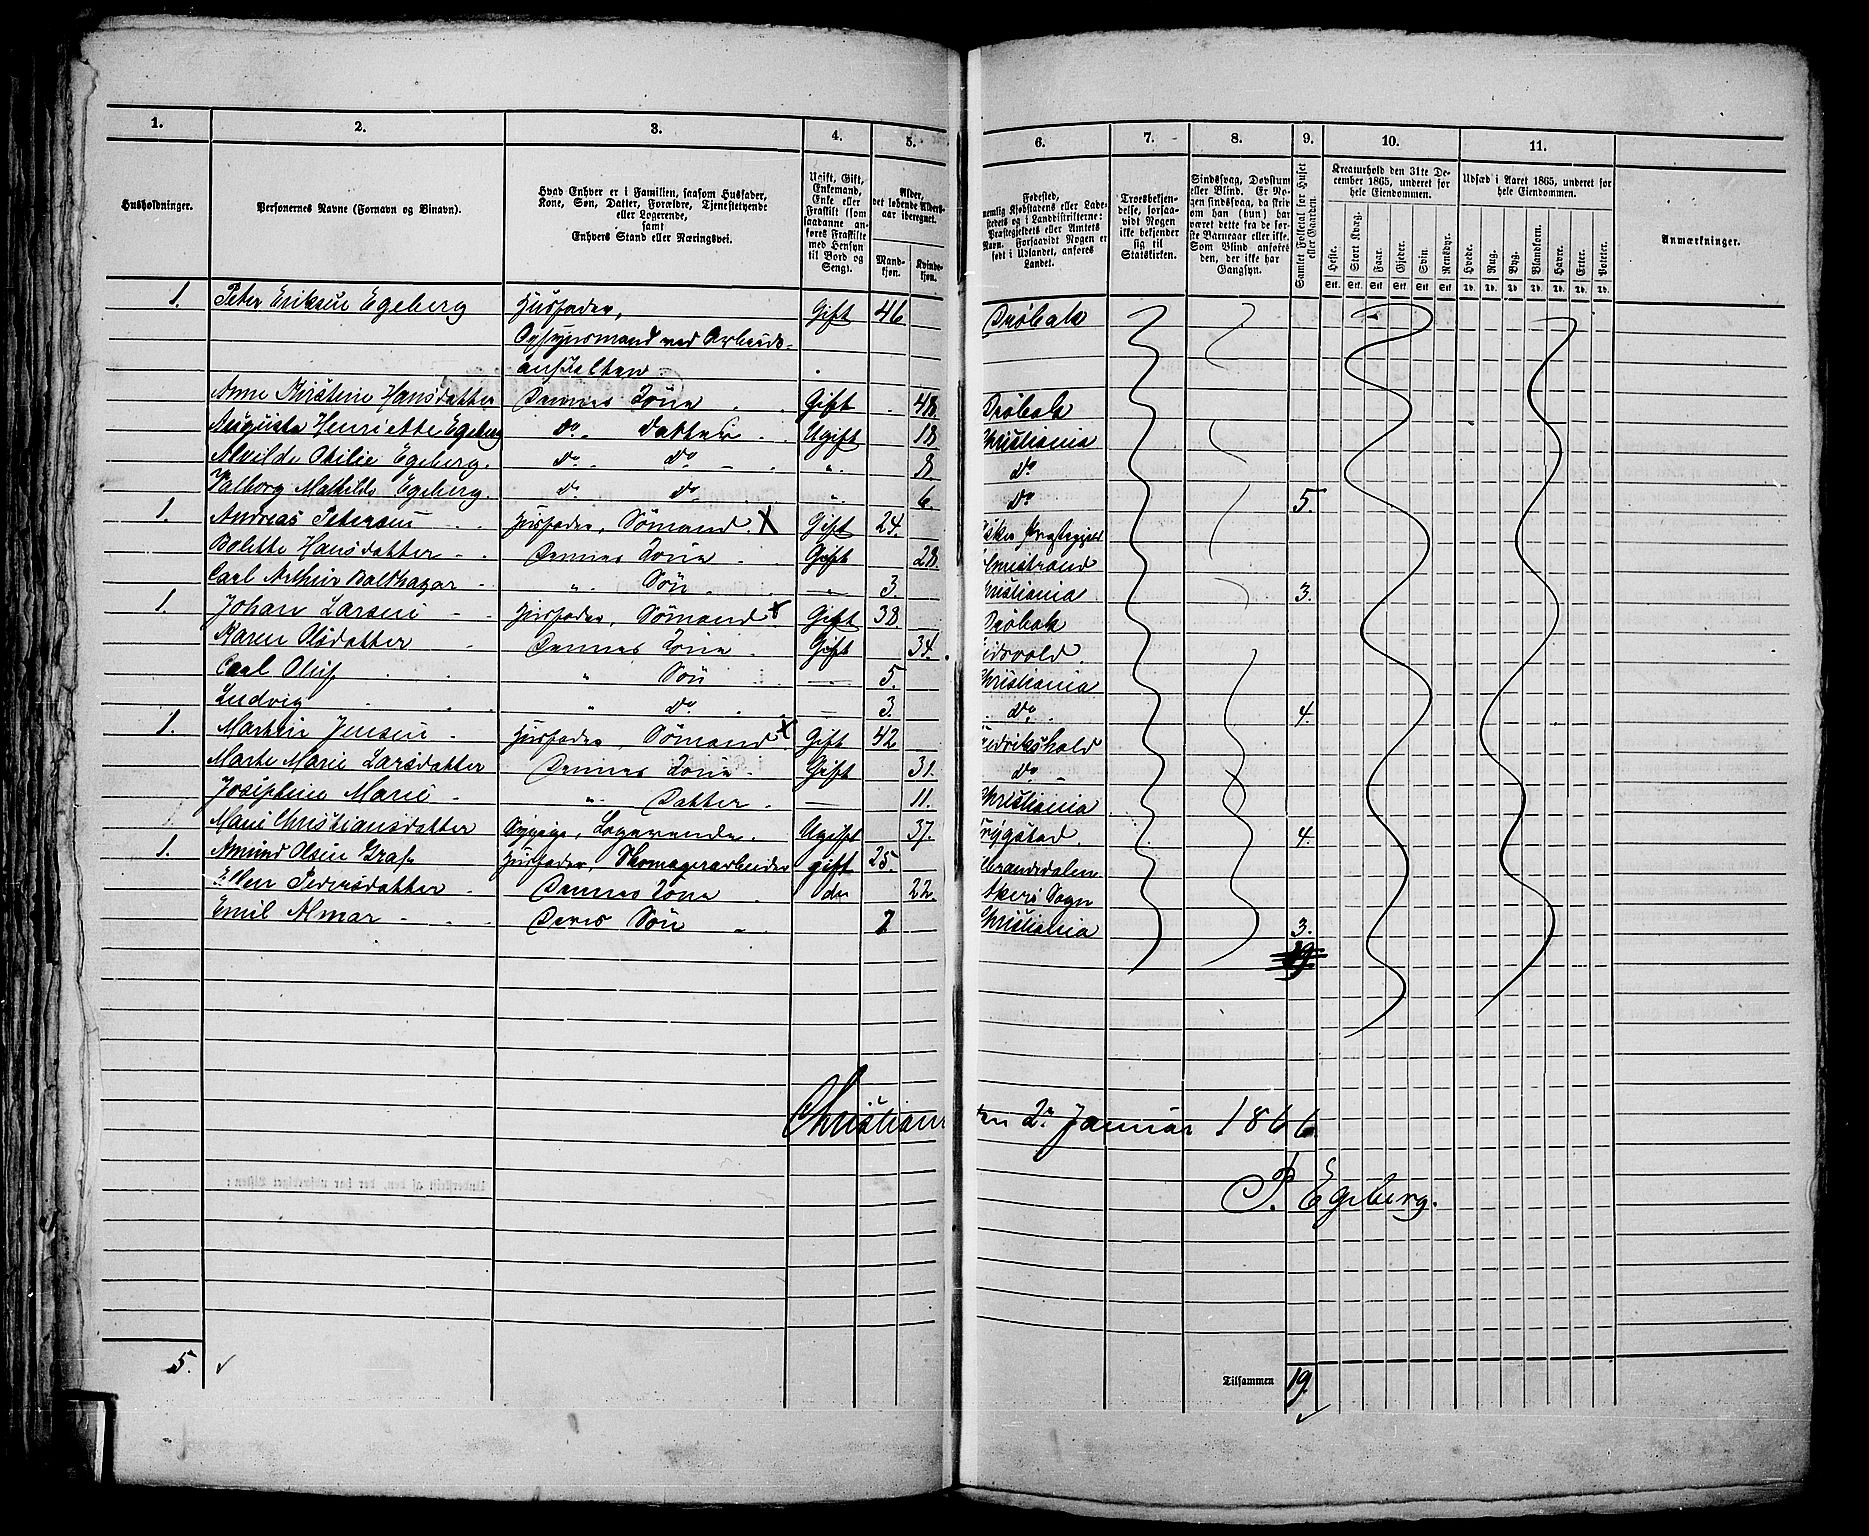 1. 2. 3. 4. 5. 6. 7. 8. 9. 10. 11.
Husholdninger.
Personernes Navne (Fornavn og Binavn).
Hvad Enhver er i Familien, saasom Husfader,
Kone, Søn, Datter, Forældre, Tjenestetyende
eller Logerende,
samt
Enhvers Stand eller Næringsvei.
Ugift, Gift,
Enkemand,
Enke eller
Fraskilt (som
saadanne an-
føres Fraskilte
med Hensyn
til Bord og
Seng).
Alder,
det løbende Alders-
aar iberegnet.
Mand-
kjøn.
Kvinde-
kjøn.
Fødested,
nemlig Kjøbstadens eller Lade-
stedets og i Landdistrikterne:
Præstegjeldets eller Amtets
Navn. Forsaavidt Nogen er
født i Udlandet, anføres
Landet.
Troesbekjen-
delse, forsaa-
vidt Nogen
ikke bekjender
sig til
Statskirken.
Sindssvag, Døvstum
eller Blind. Er No-
gen sindssvag, da skriv
om han (hun) har
været dette fra de før-
ste Barneaar eller ikke.
Som Blind anføres
den, der ikke har
Gangsyn.
Samlet Folketal for Huset
eller Gaarden.
Kreaturhold den 31te De-
cember 1865, underet for
hele Eiendommen.
Heste. Stort Kvæg. Faar. Gjeder. Svin. Rensdyr.
Stk. Stk. Stk. Stk. Stk. Stk.
Udsæd i Aaret 1865, underet for
hele Eiendommen.
Hvede. Rug. Byg. Blandkorn. Havre. Erter. Poteter.
Td. Td. Td. Td. Td. Td. Td.
Anmærkninger.
1. Peter Eriksen Egeberg Husfader, Gift 46 Drøbak
Opsynsmand ved Arbeids-
anstalten.
Anne Kirstine Hansdatter Dennes Kone Gift 48. Drøbak
Augusta Henriette Egeberg do. datter Ugift 18. Christiania
Alvilde Otilie Egeberg. do. do 8. do
Valborg Mathilde Egeberg. do do 6. do 5.
1. Andreas Petersen Husfader, Sømand. X Gift 24. Præstegjeld
Bolette Hansdatter Dennes Kone Gift 28. lmestrand
Carl Arthur Balthazar " Søn 3. hristiania 3.
1. Johan Larsen Husfader, Sømand X Gift 38. Drøbak
Karen Olsdatter Dennes Kone Gift 34. idsvold.
Carl Oluf " Søn 5. hristiania
Ludvig " do. 3. do. 4.
1. Martin Jensen Husfader, Sømand X Gift 42 edrikshald
Marte Marie Larsdatter Dennes Kone Gift 31. do
Josephine Marie " Datter. 11. hristiania
Marie Christiansdatter Logerende. Ugift 37. rygstad. 4.
1. Amund Olsen Husfader, Skomagerarbeider gift 25. brandsdalen
Ellen Pedersdatter Dennes Kone do 22. Akers Sogn
Emil Almar Deres Søn 2 hristiania 3.
19.
Christian en 2. Januar 1866
P. Egeberg.
5. Tilsammen 19.